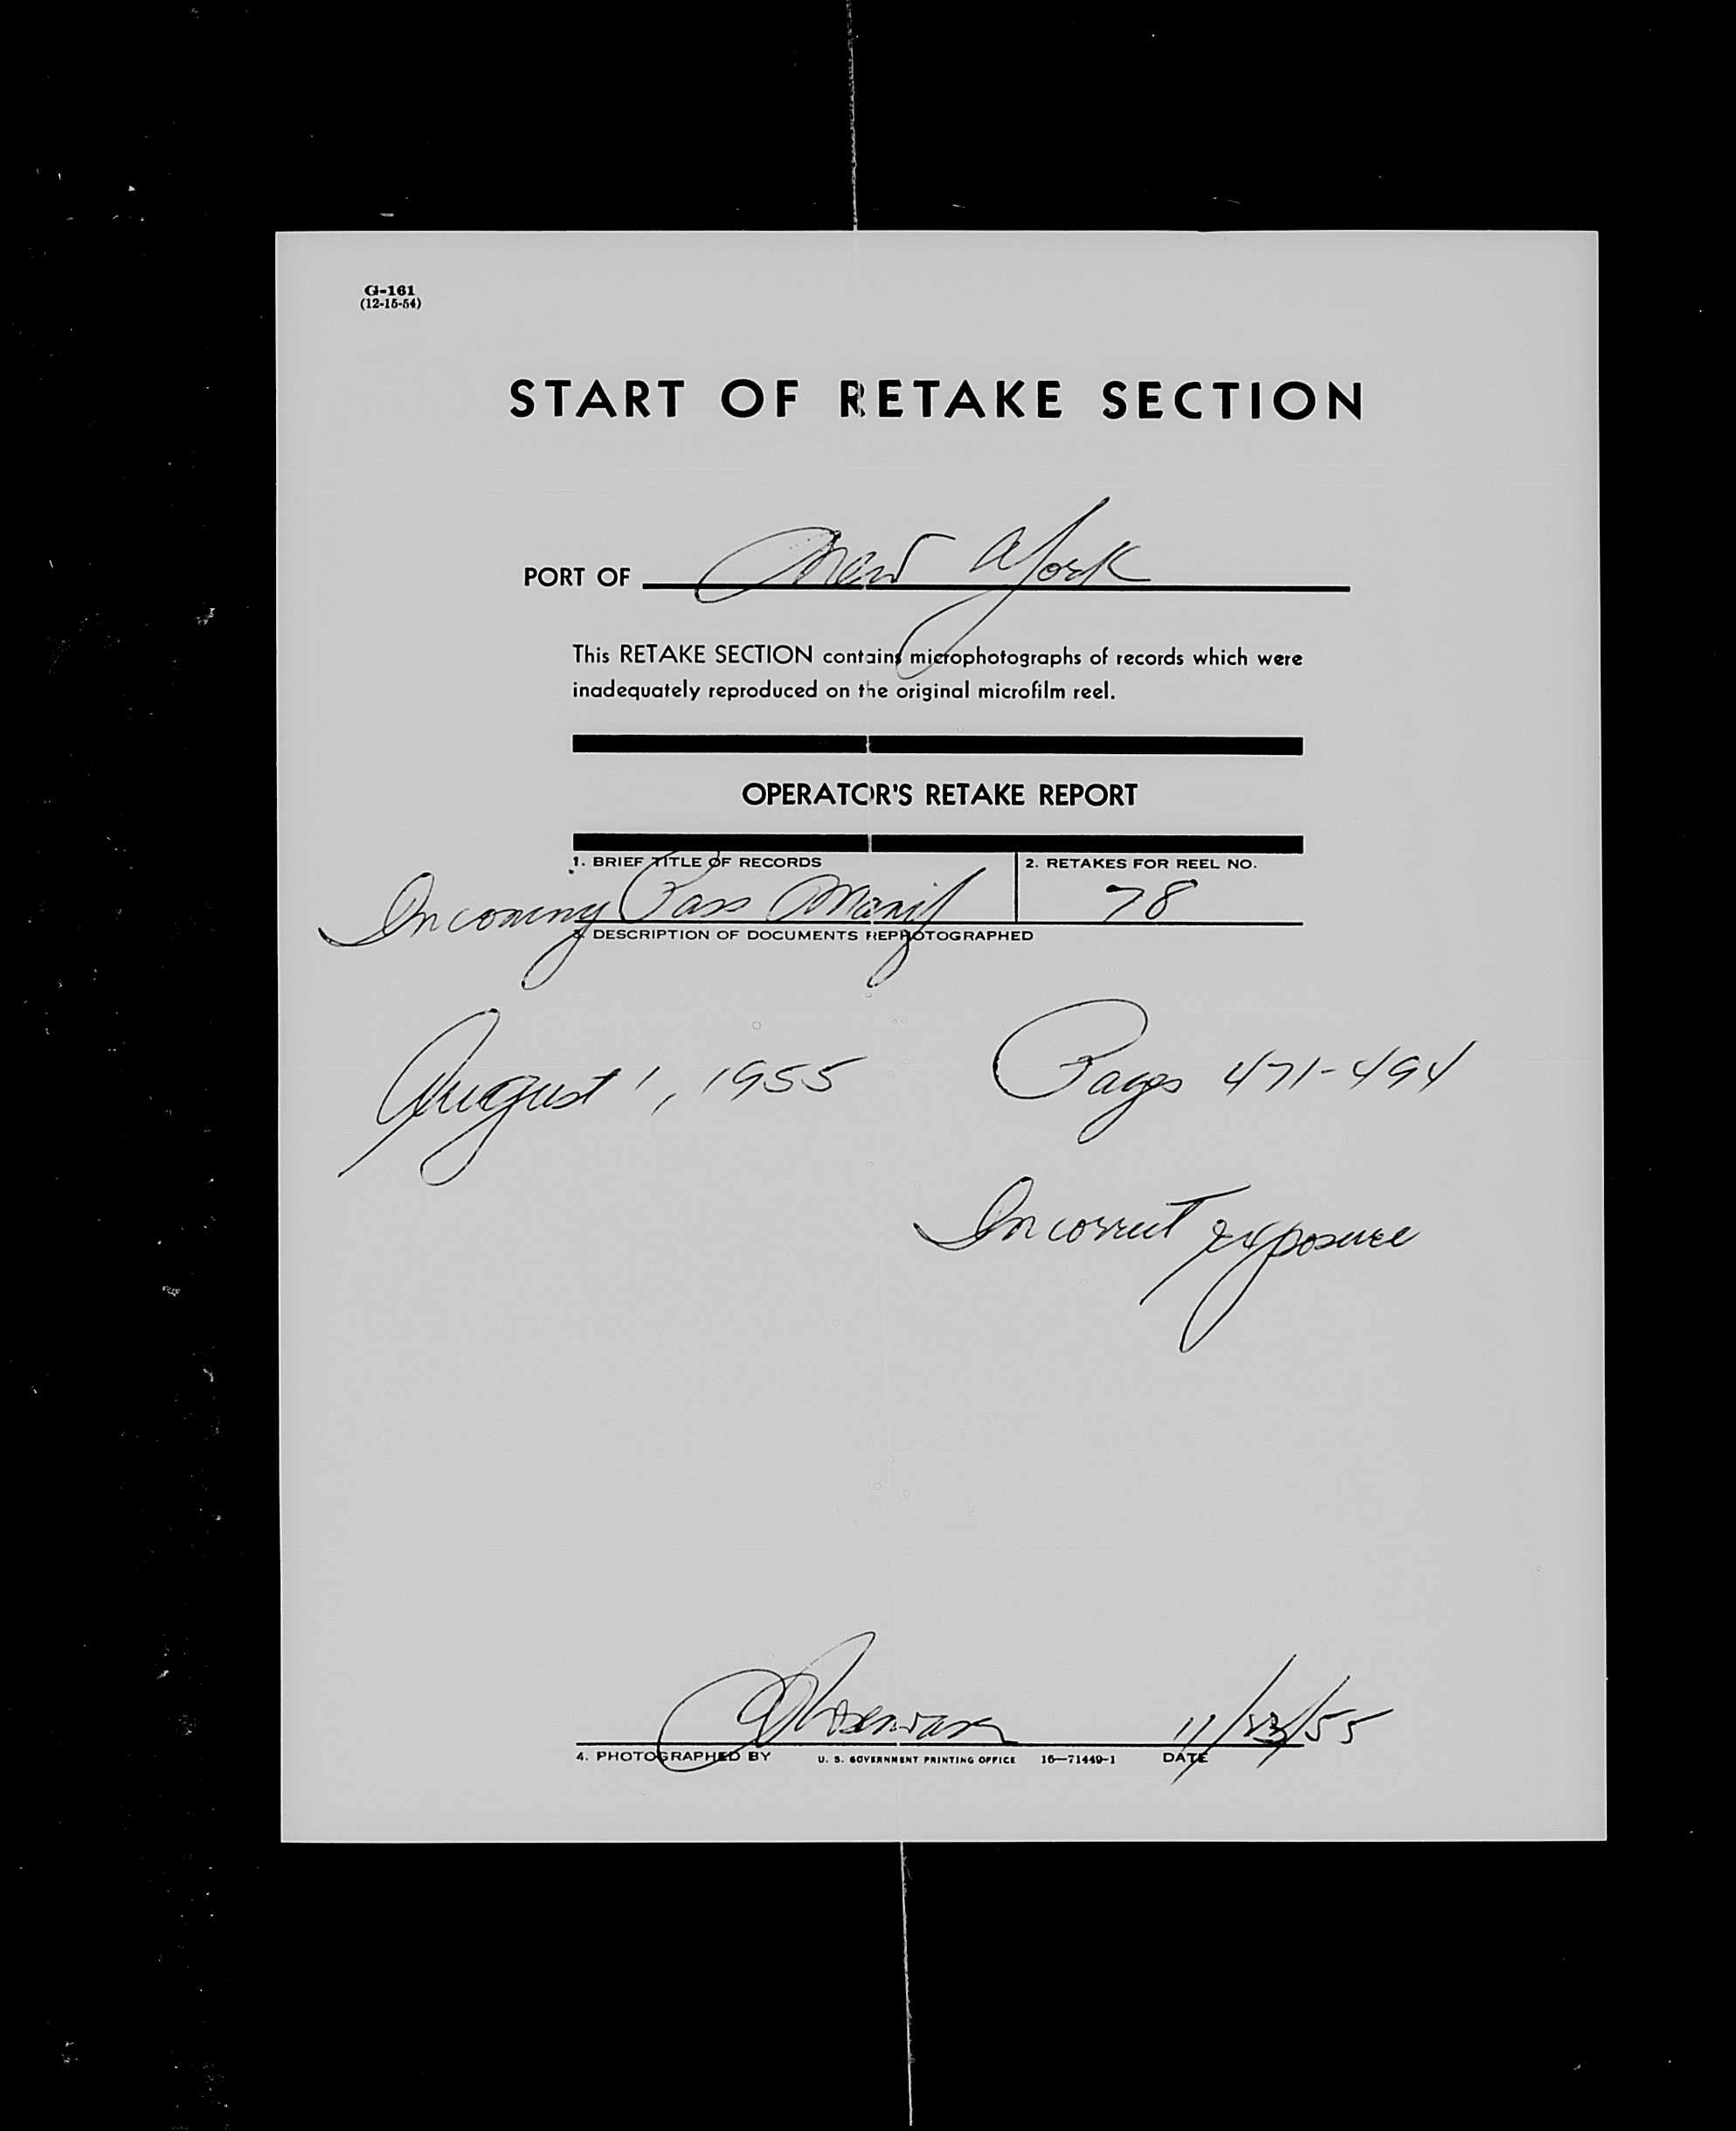 G-161
(12-15-54)
START OF RETAKE SECTION
PORT OF New York
This RETAKE SECTION contains microphotographs of records which were
inadequately reproduced on the original microfilm reel.
OPERATOR'S RETAKE REPORT
1. BRIEF TITLE OF RECORDS 2. RETAKES FOR REEL NO.
Incoming Pass Manif 78
3. DESCRIPTION OF DOCUMENTS REPHOTOGRAPHED
August 1, 1955 Pages 471-494
Incorrect exposure
11/23/55
4. PHOTOGRAPHED BY U. S. GOVERNMENT PRINTING OFFICE 16—71449-1 DATE